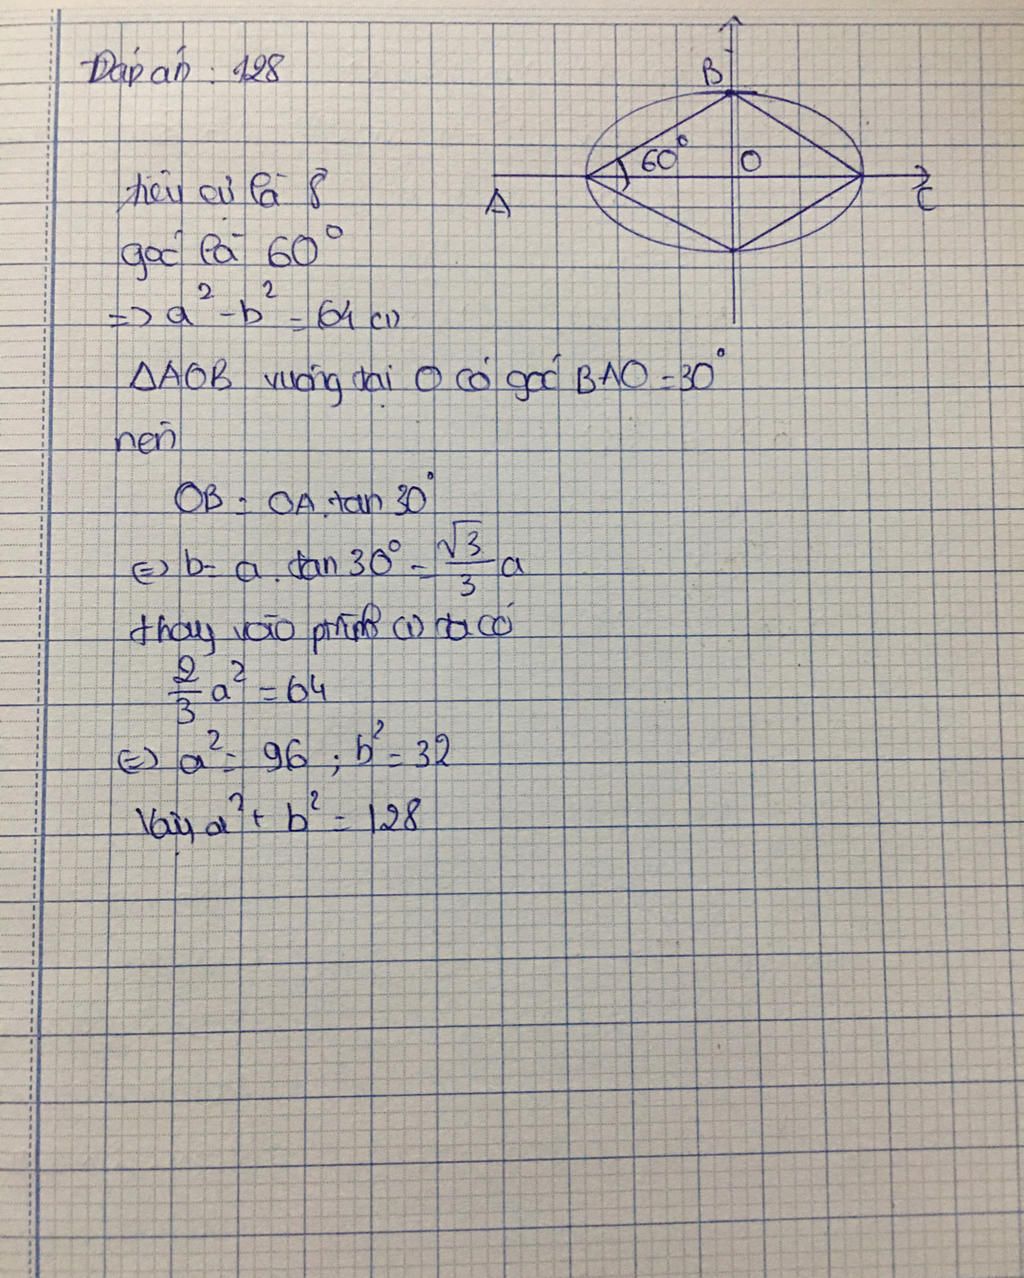 Đáp án : 128
B
60°
O
A
C
tiêu cự là 8
góc là 60°
=> a² - b² = 64 (1)
ΔAOB vuông tại O có góc BAO = 30°
nên
OB = OA.tan 30°
<=> b = a . tan 30° = √3/3 a
thay vào (1) ta có
2/3 a² = 64
<=> a² = 96 ; b² = 32
Vậy a² + b² = 128